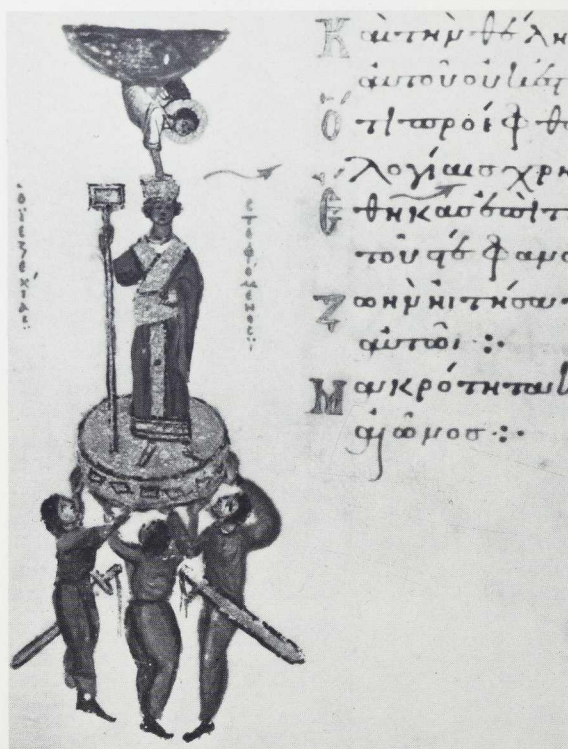 ὁ Ἐζεκίας:
στεφόμενος:
Καὶ τὴν θέλη
αὐτοῦ οὐκ ἐστ
Ὅτι προέφθ
λογίαις χρη
Ἔθηκας ἐπὶ τ
τοῦ στέφανο
Ζωὴν ἠιτήσατ
αὐτῶι :·
Μακρότητα
αἰῶνος :·